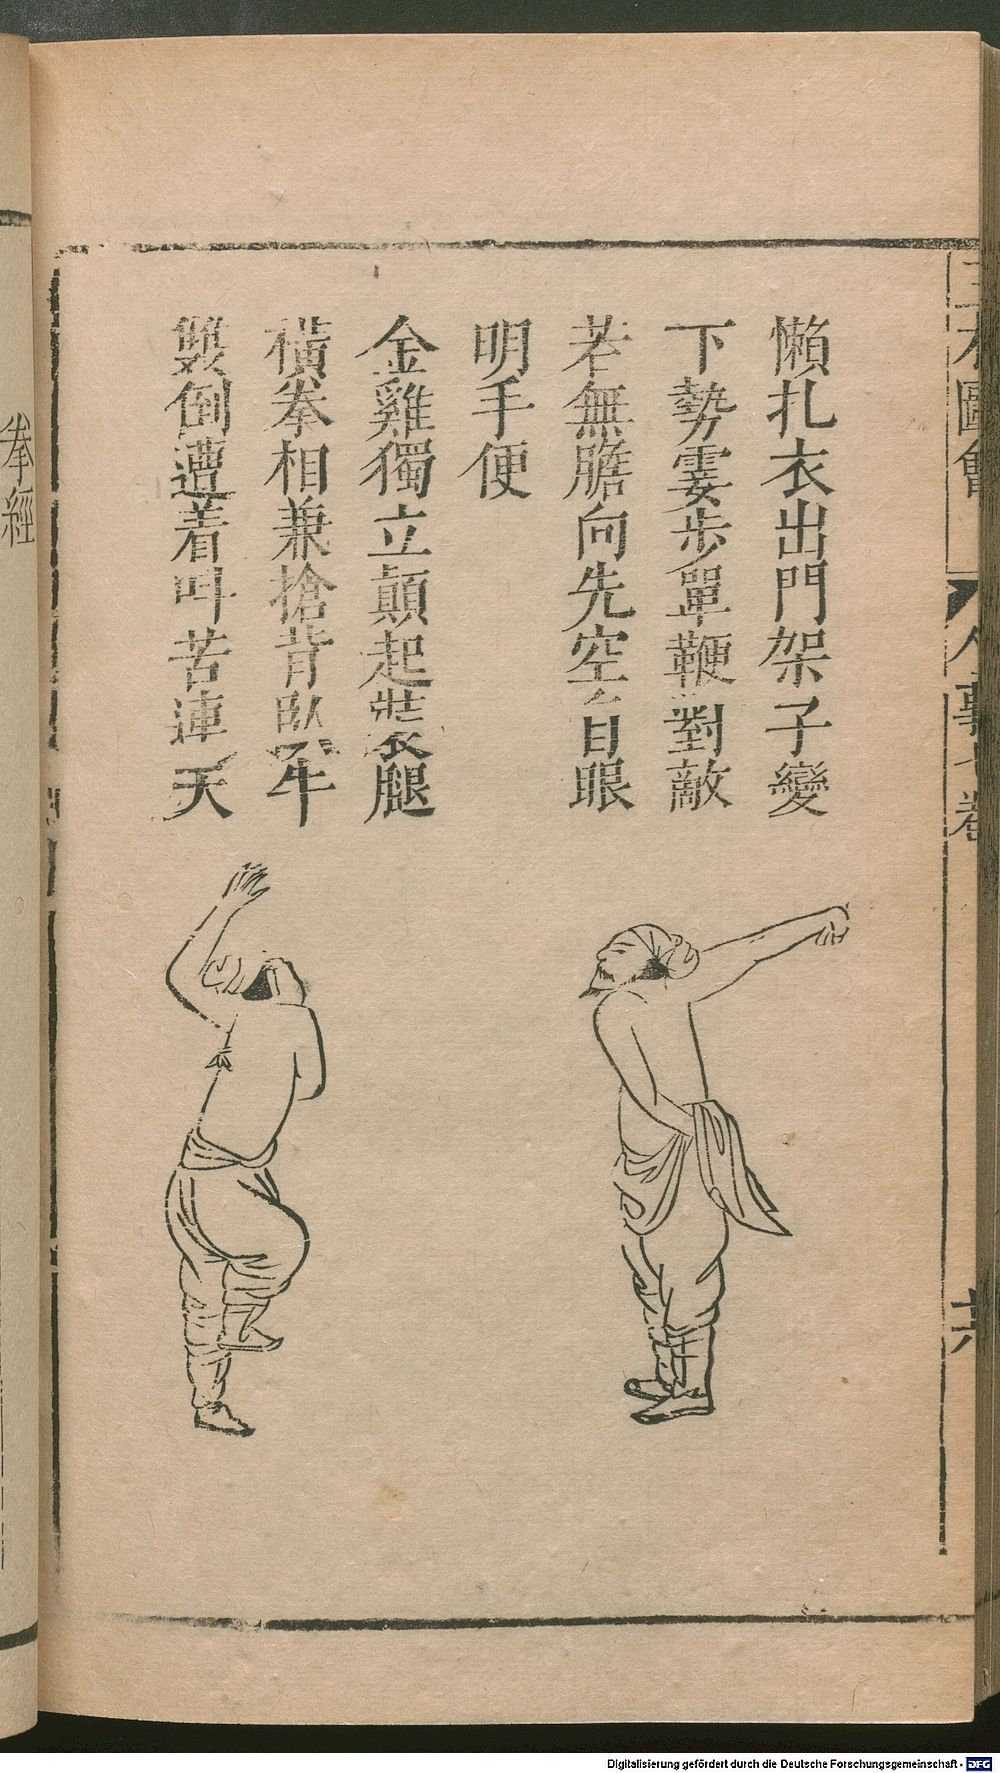 三才圖會
人事七卷
懶扎衣出門架子變
下勢霎步單鞭對敵
若無膽向先空自眼
明手便
金雞獨立顛起裝腿
橫拳相兼搶背臥牛
雙倒遭着叫苦連天
拳經
Digitalisierung gefördert durch die Deutsche Forschungsgemeinschaft - DFG